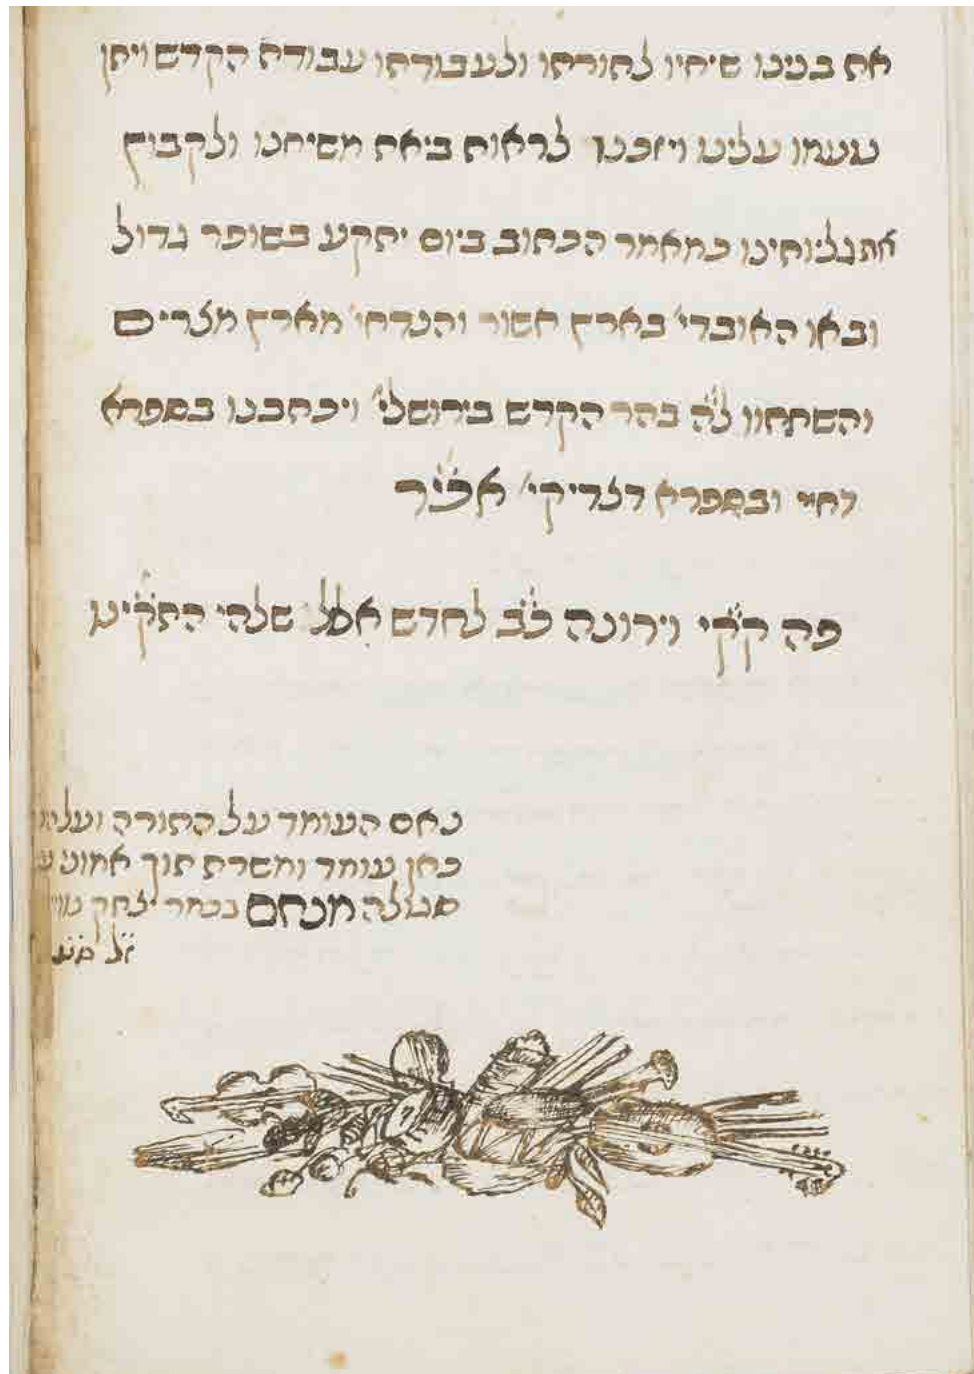 את בנינו שיחיו לתורתו ולעבודתו עבודת הקדש ויתן
עמנו עלינו ויזכנו לראות ביאת משיחנו ולקבוץ
את גליותינו כמאמר הכתוב ביום יתקע בשופר גדול
ובאו האובדי' בארץ אשור והנדחי' מארץ מצרים
והשתחוו לה' בהר הקדש בירושלי' ויכתבנו בספרא
דחיי ובספרא דצדיקי' אכי"ר
פה ק"ק וירונה כ"ב לחדש אלול שלהי התק
נאם העומד על התורה ועל
כאן עומד ומשרת תוך אמוני
סגולה מנחם בכמר יצחק
זל